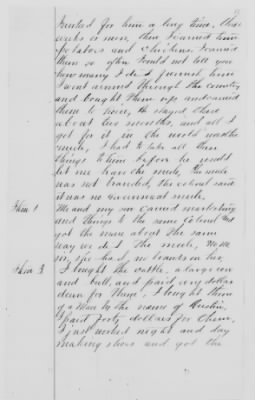 hunted for him a long time, three
weeks or more, then I carried him
potatoes and chickens I carried
them so often would not tell you
how many I did furnish him
I went around through the country
and bought them up and carried
them to him, he stayed there
about two months, and all I
got for it in the world was the
mule, I had to take all them
things to him before he would
let me have the mule, The mule
was not branded, the colonel said
it was no Government mule,
Item 1 Me and my son carried marketing
and things to the same Colonel and
got the mare about the same
way we did the mule, No
sir, she had no brands on her,
Item 3 I bought the cattle, a large cow
and bull, and paid every dollar
down for them, I bought them
of a Man by the name of
I paid forty dollars for them,
I just worked night and day
making shoes and got the